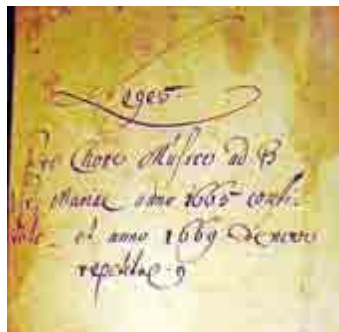 Leges
Pro Choro Musico ad B
V. Mariae anno 1665 consti
tutae et anno 1669 de novo
repetitae